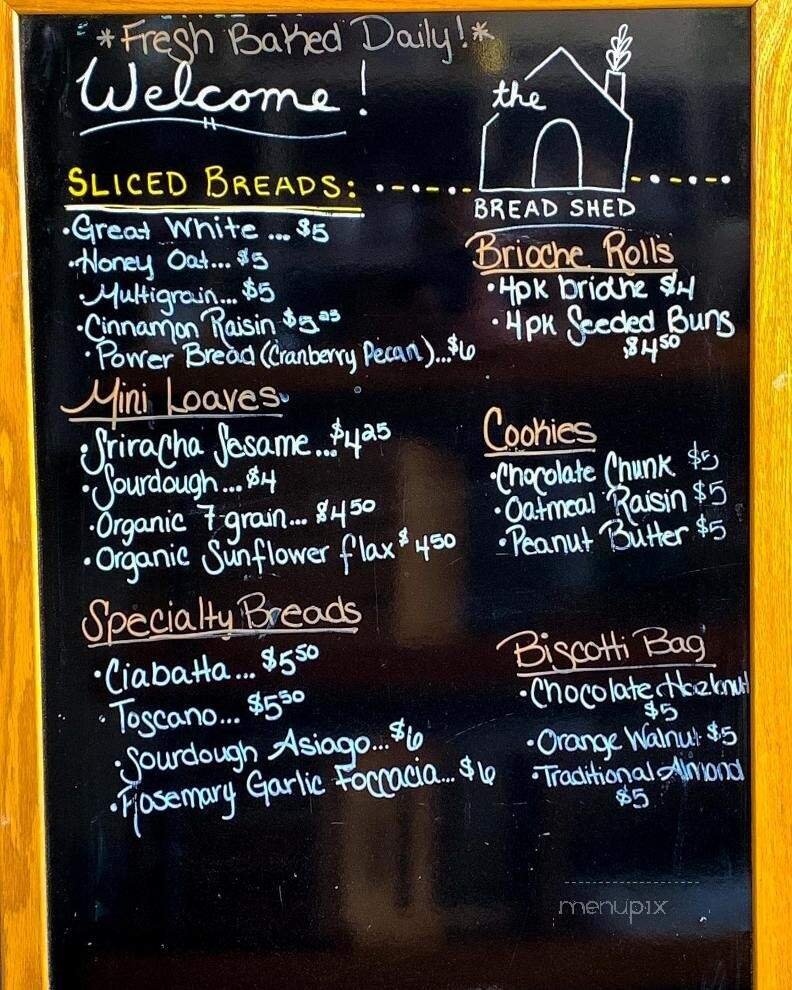 *Fresh Baked Daily!*
Welcome!
the
BREAD SHED
SLICED BREADS:
•Great White ... $5
•Honey Oat... $5
•Multigrain... $5
•Cinnamon Raisin $5.25
•Power Bread (Cranberry Pecan)...$6
Mini Loaves
•Sriracha Sesame...$4.25
•Sourdough...$4
•Organic 7 grain... $4.50
•Organic Sunflower flax $4.50
Specialty Breads
•Ciabatta... $5.50
•Toscano... $5.50
•Sourdough Asiago...$6
•Rosemary Garlic Foccacia... $6
Brioche Rolls
•4pk brioche $4
•4pk Seeded Buns
$4.50
Cookies
•Chocolate Chunk $5
•Oatmeal Raisin $5
•Peanut Butter $5
Biscotti Bag
•Chocolate Hazelnut
$5
•Orange Walnut $5
•Traditional Almond
$5
menupix